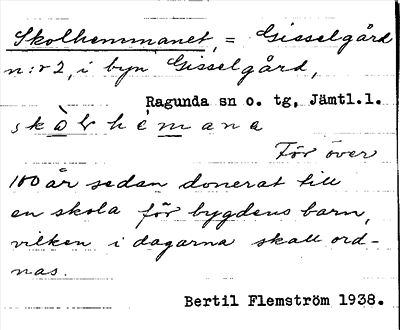 Skolhemmanet, = Gisselgård
n:r 2, i byn Gisselgård,
Ragunda sn o. tg, Jämtl.l.
skòl hèmana
För över
100 år sedan donerat till
en skola för bygdens barn,
vilken i dagarna skall ord-
nas.
Bertil Flemström 1938.